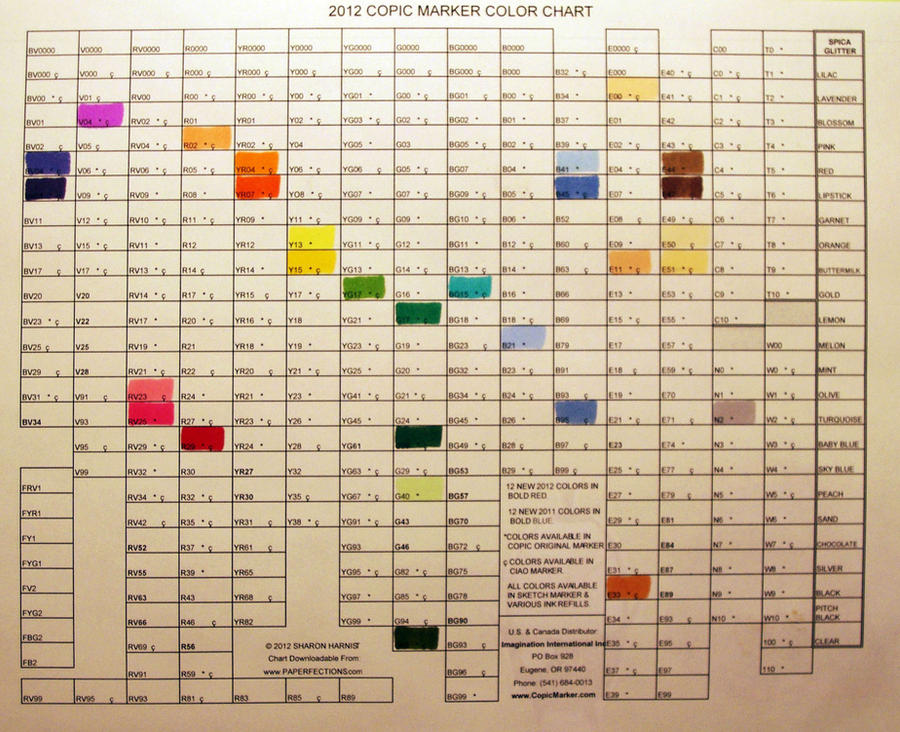 2012 COPIC MARKER COLOR CHART
BV0000 V0000 RV0000 R0000 YR0000 Y0000 YG0000 G0000 BG0000 B0000 E0000 C00 T0 * SPICA GLITTER
BV000 ç V000 ç RV000 ç R000 ç YR000 ç Y000 ç YG00 ç G000 ç BG000 ç B000 B32 * ç E000 E40 * ç C0 * ç T1 * LILAC
BV00 * ç V01 ç RV00 R00 * ç YR00 * ç Y00 * ç YG01 * G00 * ç BG01 ç B00 * ç B34 * E00 * ç E41 * ç C1 * ç T2 * LAVENDER
BV01 V04 * ç RV02 * ç R01 YR01 Y02 * ç YG03 * ç G02 * ç BG02 * B01 * B37 * E01 E42 C2 * ç T3 * BLOSSOM
BV02 ç V05 ç RV04 * ç R02 * ç YR02 * ç Y04 YG05 * G03 BG05 * ç B02 * ç B39 * ç E02 * ç E43 * ç C3 * ç T4 * PINK
BV04 * ç V06 * RV06 * ç R05 * ç YR04 * ç Y06 * ç YG06 ç G05 * ç BG07 B04 * B41 * E04 * ç E44 * C4 * T5 * RED
V09 * RV09 * R08 * YR07 * ç Y08 * YG07 * ç G07 * ç BG09 * ç B05 * ç B45 * ç E07 * C5 * ç T6 * LIPSTICK
BV11 V12 * ç RV10 * ç R11 * ç YR09 * Y11 * ç YG09 * ç G09 * BG10 * ç B06 * B52 E08 ç E49 * ç C6 * T7 * GARNET
BV13 ç V15 * ç RV11 * R12 YR12 Y13 * YG11 * ç G12 * BG11 * B12 * ç B60 ç E09 * E50 ç C7 * ç T8 * ORANGE
BV17 ç V17 * ç RV13 * ç R14 ç YR14 * Y15 * ç YG13 * G14 * ç BG13 * ç B14 * B63 ç E11 * ç E51 * ç C8 * T9 * BUTTERMILK
BV20 V20 RV14 * ç R17 * ç YR15 ç Y17 * ç YG17 * ç G16 * BG15 * ç B16 * B66 E13 * E53 * ç C9 * T10 * GOLD
BV23 * ç V22 RV17 * R20 * ç YR16 * ç Y18 YG21 * G17 * ç BG18 * B18 * ç B69 E15 * ç E55 * C10 * LEMON
BV25 ç V25 RV19 * R21 YR18 * Y19 * YG23 * ç G19 * BG23 ç B21 * B79 E17 E57 * ç W00 MELON
BV29 ç V28 RV21 * ç R22 ç YR20 ç Y21 * ç YG25 * G20 * BG32 * B23 * ç B91 E18 ç E59 * ç N0 * W0 * ç MINT
BV31 * ç V91 ç RV23 ç R24 * YR21 * Y23 * YG41 * ç G21 * ç BG34 * ç B24 * ç B93 ç E19 * E70 N1 * W1 * ç OLIVE
BV34 V93 RV25 * R27 * ç YR23 * ç Y26 * YG45 * ç G24 * BG45 * ç B26 * B95 * ç E21 * ç E71 ç N2 * W2 * ç TURQUOISE
V95 ç RV29 * ç R29 * ç YR24 * Y28 ç YG61 BG49 * ç B28 ç B97 ç E23 E74 * N3 * W3 * ç BABY BLUE
V99 RV32 * R30 YR27 Y32 YG63 * ç G29 * ç BG53 B29 * ç B99 ç E25 * ç E77 ç N4 * W4 * SKY BLUE
FRV1 RV34 * ç R32 * ç YR30 Y35 ç YG67 * ç G40 * BG57 12 NEW 2012 COLORS IN BOLD RED. E27 * E79 ç N5 * W5 * ç PEACH
FYR1 RV42 ç R35 * ç YR31 ç Y38 * ç YG91 * ç G43 BG70 12 NEW 2011 COLORS IN BOLD BLUE. E29 * ç E81 N6 * W6 * SAND
FY1 RV52 R37 * ç YR61 ç YG93 G46 BG72 ç *COLORS AVAILABLE IN COPIC ORIGINAL MARKER E30 E84 N7 * W7 * ç CHOCOLATE
FYG1 RV55 R39 * YR65 YG95 * ç G82 * ç BG75 ç COLORS AVAILABLE IN CIAO MARKER. E31 * ç E87 N8 * W8 * SILVER
FV2 RV63 R43 YR68 ç YG97 * G85 * ç BG78 ALL COLORS AVAILABLE IN SKETCH MARKER & VARIOUS INK REFILLS. E33 * ç E89 N9 * W9 * BLACK
FYG2 RV66 R46 ç YR82 YG99 * G94 ç BG90 E34 * E93 ç N10 * W10 * PITCH BLACK
FBG2 RV69 ç R56 BG93 ç E35 * ç E95 ç 100 * ç CLEAR
FB2 RV91 R59 * ç BG96 ç E37 * ç E97 110 *
RV99 RV95 ç RV93 R81 ç R83 R85 ç R89 BG99 * E39 * E99
© 2012 SHARON HARNIST
Chart Downloadable From:
www.PAPERFECTIONS.com
U.S. & Canada Distributor:
Imagination International Inc
PO Box 928
Eugene, OR 97440
Phone: (541) 684-0013
www.CopicMarker.com